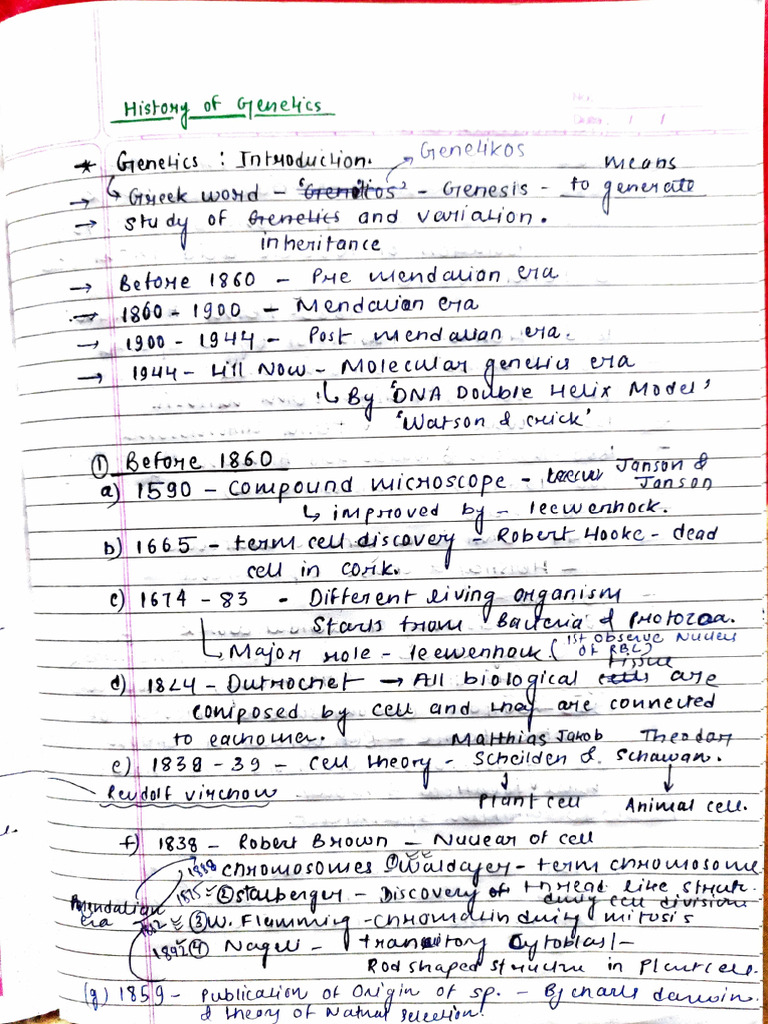 History of Genetics
No.
Date. / /
* Genetics : Introduction. Genetikos
→ Greek word - 'Genetikos' - Genesis - means to generate
→ study of Genetics and variation.
inheritance
→ Before 1860 - Pre mendalian era
→ 1860 - 1900 - Mendalian era
→ 1900 - 1944 - Post mendalian era.
→ 1944 - till Now - Molecular genetics era
↳ By 'DNA Double Helix Model'
'Watson & crick'
① Before 1860
a) 1590 - compound microscope - Janson & Janson
↳ improved by - leewenhock.
b) 1665 - term cell discovery - Robert Hooke - dead
cell in cork.
c) 1674 - 83 - Different living organism
Starts from Bacteria & Protozoa.
Major role - leewenhock (1st observe Nucleus of RBC)
d) 1824 - Dutrochet → All biological cells tissue are
composed by cell and they are connected
to eachother.
Matthias Jakob Theodor
e) 1838 - 39 - cell theory - Scheilden & Schawan.
Rudolf virchow
↓ Plant cell ↓ Animal cell.
f) 1838 - Robert Brown - Nuclear of cell
1888 chromosomes ① Waldayer - term chromosome
1875 ② stalberger - Discovery of thread like struct.
during cell division
Mendalian era
③ W. Flamming - chromatin during mitosis
1892 ④ Nageli - transitory Cytoblast -
Rod shaped structure in Plant cell.
(g) 1859 - Publication of Origin of sp. - By charls darwin.
& theory of Natural selection.